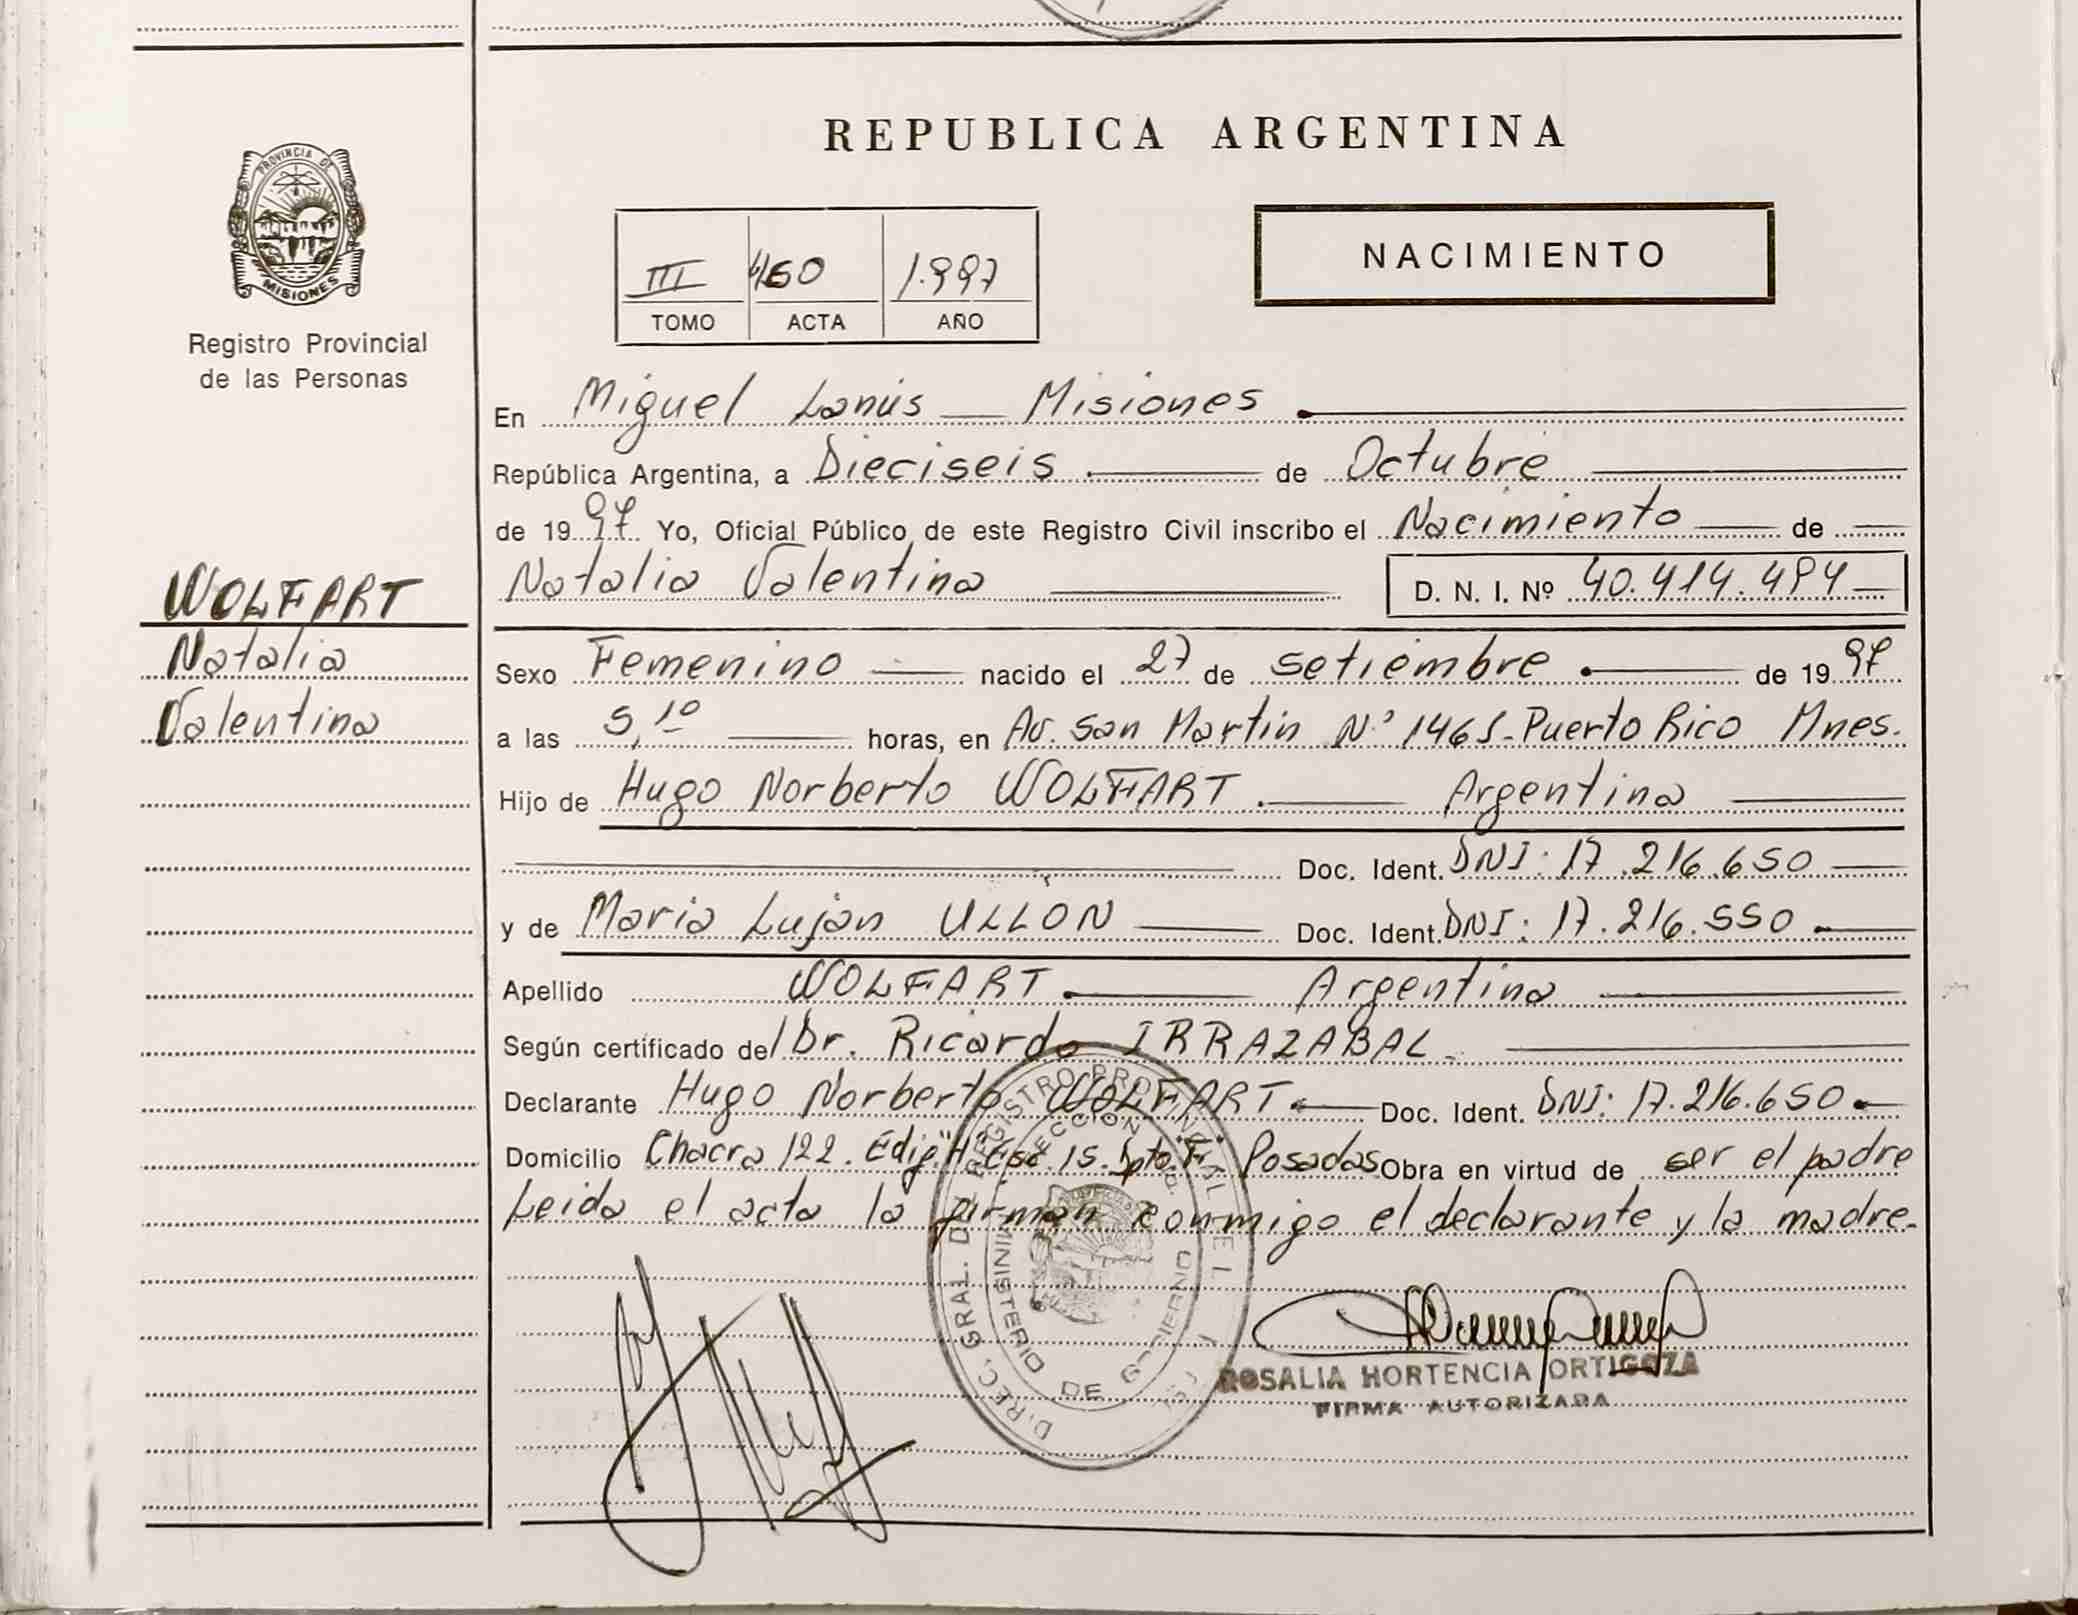 REPUBLICA ARGENTINA
PROVINCIA DE
MISIONES
Registro Provincial
de las Personas
NACIMIENTO
III 1.997
TOMO ACTA AÑO
En Miguel Lanús — Misiones
República Argentina, a Dieciseis de Octubre
de 1997 Yo, Oficial Público de este Registro Civil inscribo el Nacimiento de
Natalia Valentina D. N. I. Nº 40.414.494
WOLFART
Natalia
Valentina
Sexo Femenino nacido el 27 de setiembre de 1997
a las 5,10 horas, en Av. San Martin Nº 1465 - Puerto Rico Mnes.
Hijo de Hugo Norberto WOLFART. Argentina
Doc. Ident. DNI: 17.216.650
y de Maria Lujan ULLON Doc. Ident. DNI: 17.216.550
Apellido WOLFART. Argentina
Según certificado del Dr. Ricardo IRRAZABAL
Declarante Hugo Norberto WOLFART Doc. Ident. DNI: 17.216.650
Domicilio Chacra 122. Edif. "H" Esc. 15. Dpto. "F" Posadas Obra en virtud de ser el padre
Leida el acta la firman conmigo el declarante y la madre.
DIREC. GRAL. DEL REGISTRO PROVINCIAL DE L
MINISTERIO DE GOBIERNO
ROSALIA HORTENCIA ORTIGOZA
FIRMA AUTORIZADA